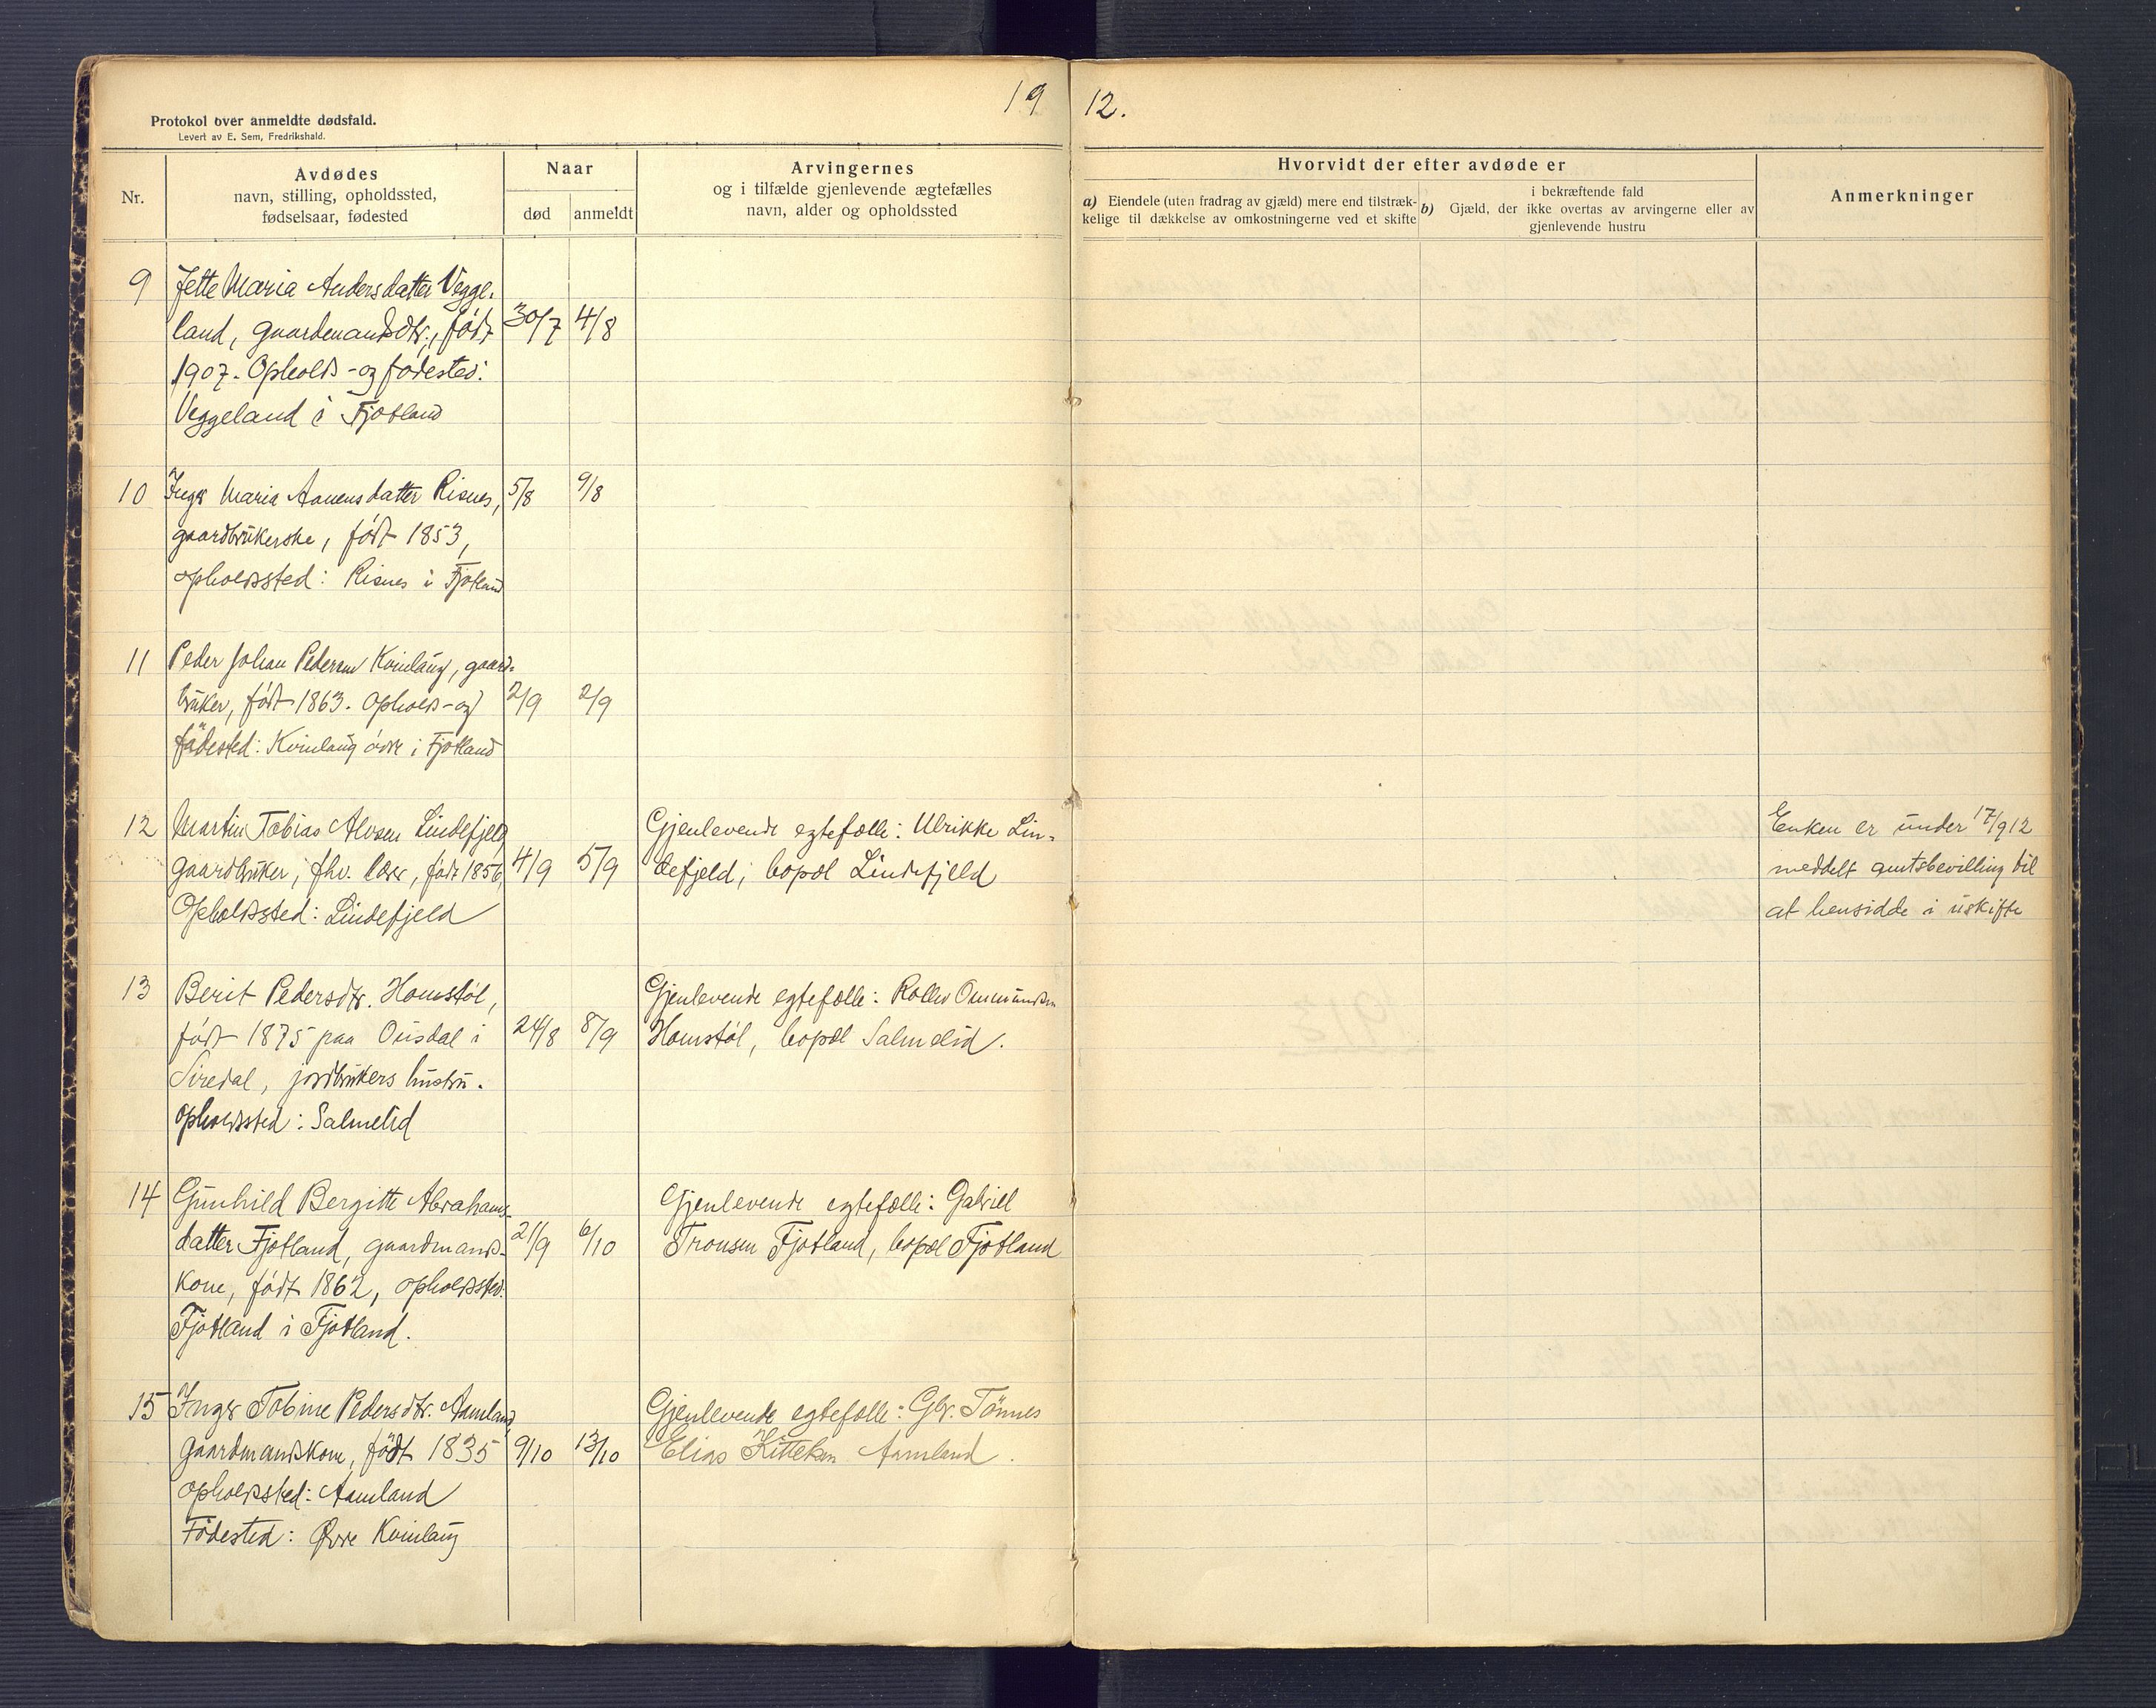 1912.
Protokol over anmeldte dødsfald.
Levert av E. Sem, Fredrikshald.
Nr.
Avdødes
navn, stilling, opholdssted,
fødselsaar, fødested
Naar
død
anmeldt
Arvingernes
og i tilfælde gjenlevende ægtefælles
navn, alder og opholdssted
Hvorvidt der efter avdøde er
a) Eiendele (uten fradrag av gjæld) mere end tilstræk-
kelige til dækkelse av omkostningerne ved et skifte
i bekræftende fald
b) Gjæld, der ikke overtas av arvingerne eller av
gjenlevende hustru
Anmerkninger
9
Jette Maria Andersdatter Vegge-
land, gaardmandsdtr., født
1907. Opholds- og fødested:
Veggeland i Fjotland
30/7 4/8
10
Inger Maria Aanensdatter Risnes,
gaardbrukerske, født 1853,
opholdssted: Risnes i Fjotland
5/8 9/8
11
Peder Johan Pedersen Kvinlaug, gaard-
bruker, født 1863. Opholds- og
fødested: Kvinlaug övre i Fjotland
2/9 2/9
12
Martin Tobias Alvsen Lindefjeld
gaardbruker, fhv. lærer, født 1856,
Opholdssted: Lindefjeld
4/9 5/9
Gjenlevende egtefælle: Ulrikke Lin-
defjeld, bopæl Lindefjeld
Enken er under 17/9 12
meddelt amtsbevilling til
at hensidde i uskifte
13
Berit Pedersdtr. Homstøl,
født 1875 paa Ousdal i
Siredal, jordbrukers hustru.
Opholdssted: Salmelid
24/8 8/9
Gjenlevende egtefælle: Rollev Ommundsen
Homstøl, bopæl Salmelid.
14
Gunhild Bergitte Abrahams-
datter Fjotland, gaardmands-
kone, født 1862, opholdssted:
Fjotland i Fjotland.
21/9 6/10
Gjenlevende egtefælle: Gabriel
Tronsen Fjotland, bopæl Fjotland
15
Inger Tobine Pedersdtr. Aamland,
gaardmandskone, født 1835
opholdssted: Aamland
Fødested: Øvre Kvinlaug
9/10 13/10
Gjenlevende egtefælle: Gbr. Tönnes
Elias Kittelsen Aamland.